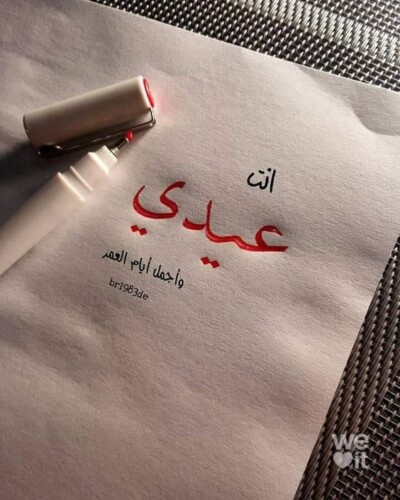 انت
عيدي
وأجمل أيام العمر
br1983de
we
it